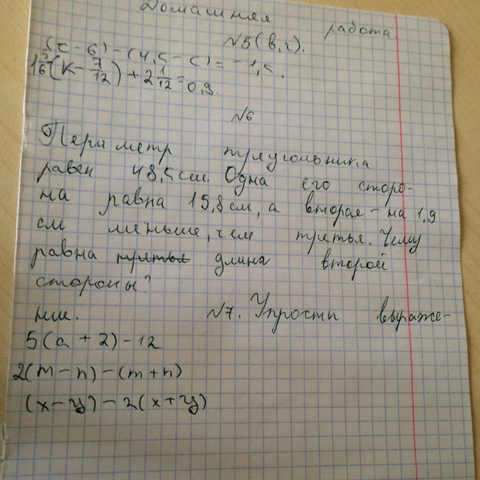 Домашняя работа.
№5(в,г).
(c-6)-(4,5-c)=-1,5.
(k-7/12)+2 1/12=0,9.
№6
Периметр треугольника
равен 48,5см Одна его сторо-
на равна 15,8см, а вторая-на 1,9
см меньше, чем третья. Чему
равна третья длина второй
стороны?
№7. Упрости выраже-
ние.
5(a+2)-12
2(m-n)-(m+n)
(x-y)-2(x+y)